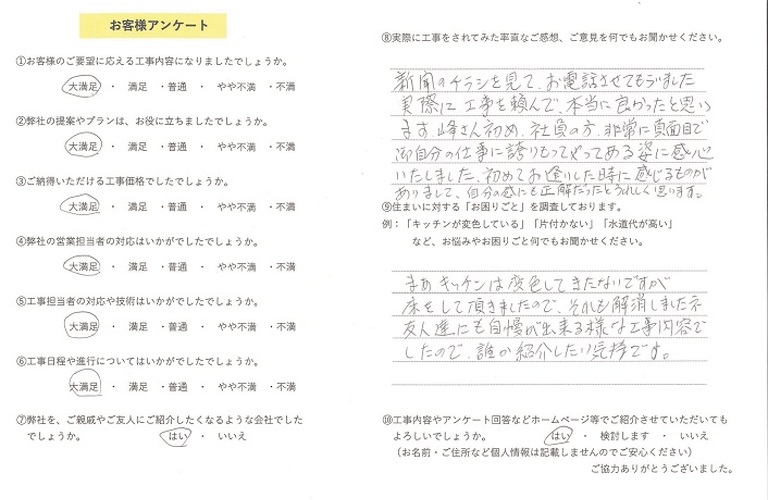 お客様アンケート
①お客様のご要望に応える工事内容になりましたでしょうか。
大満足 ・ 満足 ・普通 ・ やや不満 ・不満
②弊社の提案やプランは、お役に立ちましたでしょうか。
大満足 ・ 満足 ・普通 ・ やや不満 ・不満
③ご納得いただける工事価格でしたでしょうか。
大満足 ・ 満足 ・普通 ・ やや不満 ・不満
④弊社の営業担当者の対応はいかがでしたでしょうか。
大満足 ・ 満足 ・普通 ・ やや不満 ・不満
⑤工事担当者の対応や技術はいかがでしたでしょうか。
大満足 ・ 満足 ・普通 ・ やや不満 ・不満
⑥工事日程や進行についてはいかがでしたでしょうか。
大満足 ・ 満足 ・普通 ・ やや不満 ・不満
⑦弊社を、ご親戚やご友人にご紹介したくなるような会社でした
でしょうか。 はい ・ いいえ
⑧実際に工事をされてみた率直なご感想、ご意見を何でもお聞かせください。
新聞のチラシを見て、お電話させてもらいました
実際に工事を頼んで、本当に良かったと思い
ます。峰さん初め、社員の方、非常に真面目で
御自分の仕事に誇りもってやってある姿に感心
いたしました。初めてお逢いした時に感じるものが
ありまして、自分の感にも正解だったとうれしく思います。
⑨住まいに対する「お困りごと」を調査しております。
例:「キッチンが変色している」「片付かない」「水道代が高い」
など、お悩みやお困りごと何でもお聞かせください。
まあキッチンは変色してきたないですが
床をして頂きましたので、それも解消しましたネ
友人達にも自慢が出来る様な工事内容で
したので、誰か紹介したい気持です。
⑩工事内容やアンケート回答などホームページ等でご紹介させていただいても
よろしいでしょうか。 はい ・ 検討します ・ いいえ
(お名前・ご住所など個人情報は記載しませんのでご安心ください)
ご協力ありがとうございました。